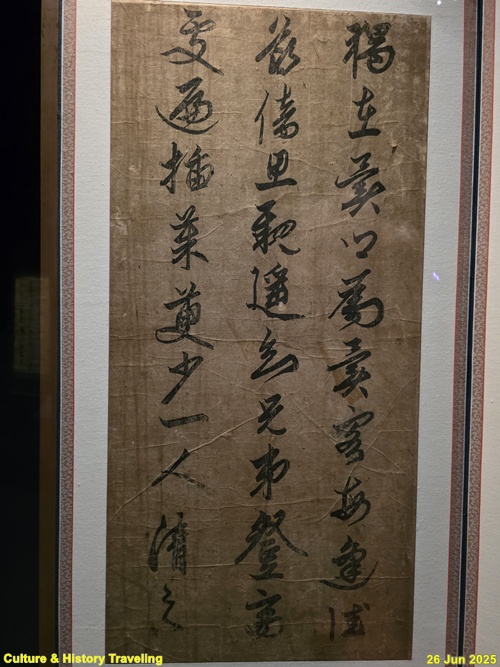 獨在異鄉為異客每逢佳
節倍思親遙知兄弟登高
處遍插茱萸少一人清之
Culture & History Traveling
26 Jun 2025